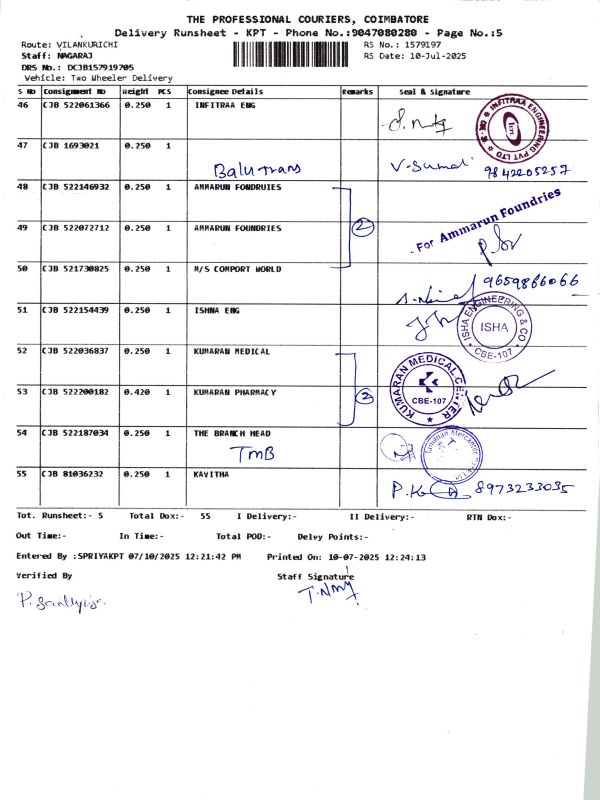 THE PROFESSIONAL COURIERS, COIMBATORE
Delivery Runsheet - KPT - Phone No.:9047080280 - Page No.:5
Route: VILANKURICHI
RS No.: 1579197
Staff: NAGARAJ
RS Date: 10-Jul-2025
DRS No.: DCJB157919705
Vehicle: Two Wheeler Delivery
S No Consignment No Weight PCS Consignee Details Remarks Seal & Signature
46 CJB 522061366 0.250 1 INFITRAA ENG
INFITRAA ENGINEERING PVT LTD
47 CJB 1693021 0.250 1
Balu trans V-Sumathi 9842205257
48 CJB 522146932 0.250 1 AMMARUN FONDRUIES
2
For Ammarun Foundries
49 CJB 522072712 0.250 1 AMMARUN FOUNDRIES
50 CJB 521730825 0.250 1 M/S COMPORT WORLD
9659866066
51 CJB 522154439 0.250 1 ISHNA ENG
ISHA ENGINEERING & CO
ISHA
CBE-107
52 CJB 522036837 0.250 1 KUMARAN MEDICAL
KUMARAN MEDICAL CENTER
CBE-107
53 CJB 522200182 0.420 1 KUMARAN PHARMACY
2
54 CJB 522187034 0.250 1 THE BRANCH HEAD
TMB
Tamilnad Mercantile
55 CJB 81036232 0.250 1 KAVITHA
8973233035
Tot. Runsheet:- 5 Total Dox:- 55 I Delivery:- II Delivery:- RTN Dox:-
Out Time:- In Time:- Total POD:- Delvy Points:-
Entered By :SPRIYAKPT 07/10/2025 12:21:42 PM Printed On: 10-07-2025 12:24:13
Verified By Staff Signature